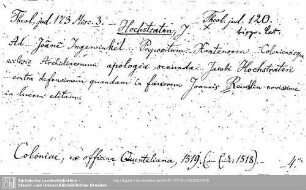 Theol. jud. 173. Misc. 3.
Theol. jud. 120.
Hochstraten, J.
Ad. Joāne Ingenwinkel Prepositum Xantensem Coloniensis
ecclesie Archidiaconum apologia secunda Jacobi Hochstraten
contra defensionem quandam in favorem Joannis Reuchlin novissime
in lucem editam.
Coloniae, ex officina Quenteliana, 1519. 4°
Sächsische Landesbibliothek -
Staats- und Universitätsbibliothek Dresden